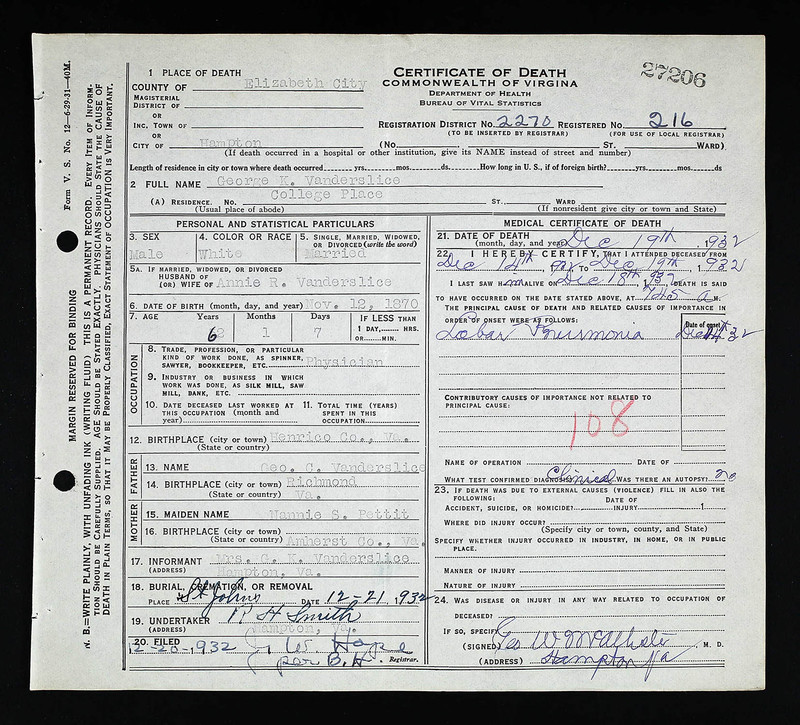 27206
1 PLACE OF DEATH
COUNTY OF Elizabeth City
MAGISTERIAL
DISTRICT OF
OR
INC. TOWN OF
OR
CITY OF Hampton
CERTIFICATE OF DEATH
COMMONWEALTH OF VIRGINIA
DEPARTMENT OF HEALTH
BUREAU OF VITAL STATISTICS
REGISTRATION DISTRICT NO. 2270 REGISTERED NO. 216
(TO BE INSERTED BY REGISTRAR) (FOR USE OF LOCAL REGISTRAR)
(No. ST. WARD)
(If death occurred in a hospital or other institution, give its NAME instead of street and number)
Length of residence in city or town where death occurred yrs. mos. ds. How long in U. S., if of foreign birth? yrs. mos. ds
2 FULL NAME George K. Vanderslice
(A) RESIDENCE. No. College Place ST., WARD
(Usual place of abode) (If nonresident give city or town and State)
PERSONAL AND STATISTICAL PARTICULARS
3. SEX 4. COLOR OR RACE 5. SINGLE, MARRIED, WIDOWED, OR DIVORCED (write the word)
Male White Married
5A. IF MARRIED, WIDOWED, OR DIVORCED
HUSBAND OF
(OR) WIFE OF Annie R. Vanderslice
6. DATE OF BIRTH (month, day, and year) Nov. 12, 1870
7. AGE Years Months Days IF LESS THAN
1 DAY, HRS.
OR MIN.
62 1 7
OCCUPATION
8. TRADE, PROFESSION, OR PARTICULAR
KIND OF WORK DONE, AS SPINNER,
SAWYER, BOOKKEEPER, ETC. Physician
9. INDUSTRY OR BUSINESS IN WHICH
WORK WAS DONE, AS SILK MILL, SAW
MILL, BANK, ETC.
10. DATE DECEASED LAST WORKED AT
THIS OCCUPATION (month and
year)
11. TOTAL TIME (YEARS)
SPENT IN THIS
OCCUPATION
12. BIRTHPLACE (city or town) Henrico Co., Va.
(State or country)
FATHER
13. NAME Geo. C. Vanderslice
14. BIRTHPLACE (city or town) Richmond
(State or country) Va.
MOTHER
15. MAIDEN NAME Nannie S. Pettit
16. BIRTHPLACE (city or town)
(State or country) Amherst Co., Va.
17. INFORMANT Mrs. G. K. Vanderslice
(ADDRESS) Hampton, Va.
18. BURIAL, CREMATION, OR REMOVAL
PLACE St Johns DATE 12-21, 1932
19. UNDERTAKER R H Smith
(ADDRESS) Hampton, Va.
20. FILED 12-20-1932 W. Hope
per B.H. Registrar.
MEDICAL CERTIFICATE OF DEATH
21. DATE OF DEATH
(month, day, and year) Dec 19th, 1932
22. I HEREBY CERTIFY, THAT I ATTENDED DECEASED FROM
Dec 14th, 1932 TO Dec 19th, 1932
I LAST SAW HIM ALIVE ON Dec 18th, 1932 DEATH IS SAID
TO HAVE OCCURRED ON THE DATE STATED ABOVE, AT 745 A M.
THE PRINCIPAL CAUSE OF DEATH AND RELATED CAUSES OF IMPORTANCE IN
ORDER OF ONSET WERE AS FOLLOWS: Date of onset
Lobar Pneumonia Dec 14 32
CONTRIBUTORY CAUSES OF IMPORTANCE NOT RELATED TO
PRINCIPAL CAUSE:
108
NAME OF OPERATION DATE OF
WHAT TEST CONFIRMED DIAGNOSIS? Clinical WAS THERE AN AUTOPSY? no
23. IF DEATH WAS DUE TO EXTERNAL CAUSES (VIOLENCE) FILL IN ALSO THE
FOLLOWING:
DATE OF
ACCIDENT, SUICIDE, OR HOMICIDE? INJURY 1
WHERE DID INJURY OCCUR?
(Specify city or town, county, and State)
SPECIFY WHETHER INJURY OCCURRED IN INDUSTRY, IN HOME, OR IN PUBLIC
PLACE.
MANNER OF INJURY
NATURE OF INJURY
24. WAS DISEASE OR INJURY IN ANY WAY RELATED TO OCCUPATION OF
DECEASED?
IF SO, SPECIFY
(SIGNED) Geo W M. D.
(ADDRESS) Hampton Va
Form V. S. No. 12—6-29-31—40M.
MARGIN RESERVED FOR BINDING
N. B.—WRITE PLAINLY, WITH UNFADING INK (WRITING FLUID) THIS IS A PERMANENT RECORD. EVERY ITEM OF INFORMATION SHOULD BE CAREFULLY SUPPLIED. AGE SHOULD BE STATED EXACTLY. PHYSICIANS SHOULD STATE THE CAUSE OF DEATH IN PLAIN TERMS, SO THAT IT MAY BE PROPERLY CLASSIFIED, EXACT STATEMENT OF OCCUPATION IS VERY IMPORTANT.